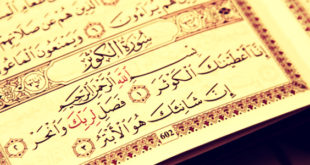 الذين هم عن صلاتهم
ويمنعون الماعون
سورة الكوثر
بسم الله الرحمن الرحيم
إنا أعطيناك الكوثر ١ فصل لربك وانحر ٢
إن شانئك هو الأبتر ٣
602